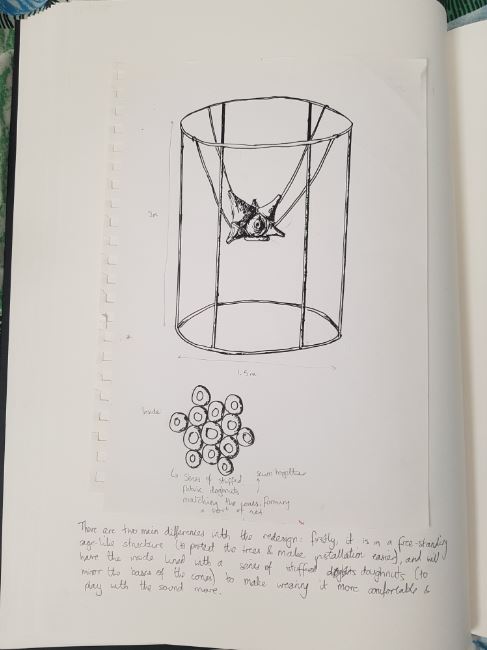 2m
1.5m
Inside
↳ Series of stuffed sewn together
fabric doughnuts
matching the cones, forming
a sort of nest
There are two main differences with the redesign: firstly, it is in a free-standing
cage-like structure (to protect the trees & make installation easier), and will
have the inside lined with a series of stuffed doughnuts (to
mirror the bases of the cones) to make wearing it more comfortable &
play with the sound more.